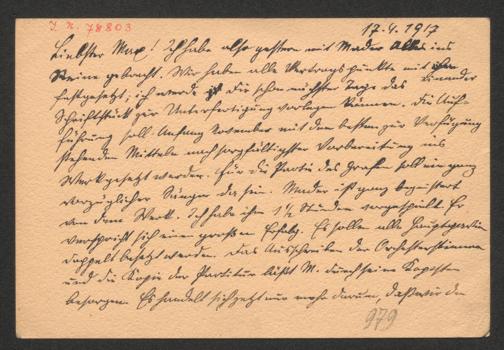 I. N. 78803
17.4.1917
Liebster Max! Ich habe also gestern mit Mader Alles ins
Reine gebracht. Wir haben alle Vertragspunkte mit einander
festgesetzt, ich werde Dir schon nächster Tage das
Schriftstück zur Unterfertigung vorlegen können. Die Auf-
führung soll Anfang November mit den besten zur Verfügung
stehenden Mitteln nach sorgfältigster Vorbereitung ins
Werk gesetzt werden. Für die Partie des Grafen soll ein ganz
vorzüglicher Sänger da sein. Mader ist ganz begeistert
von dem Werk. Ich habe ihm 1½ Stunden vorgespielt. Er
verspricht sich einen großen Erfolg. Es sollen alle Hauptpartien
doppelt besetzt werden. Das Ausschreiben der Orchesterstimmen
und die Kopie der Partitur läßt M. durch seine Kopisten
besorgen. Es handelt sich jetzt nur mehr darum, daß wir den
979